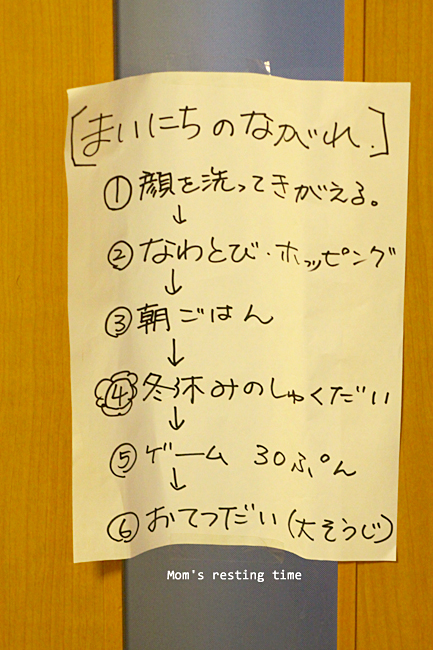 [まいにちのながれ.]
①顔を洗ってきがえる。
↓
②なわとび・ホッピング
↓
③朝ごはん
↓
④冬休みのしゅくだい
↓
⑤ゲーム 30ぷん
↓
⑥おてつだい(大そうじ)
Mom's resting time